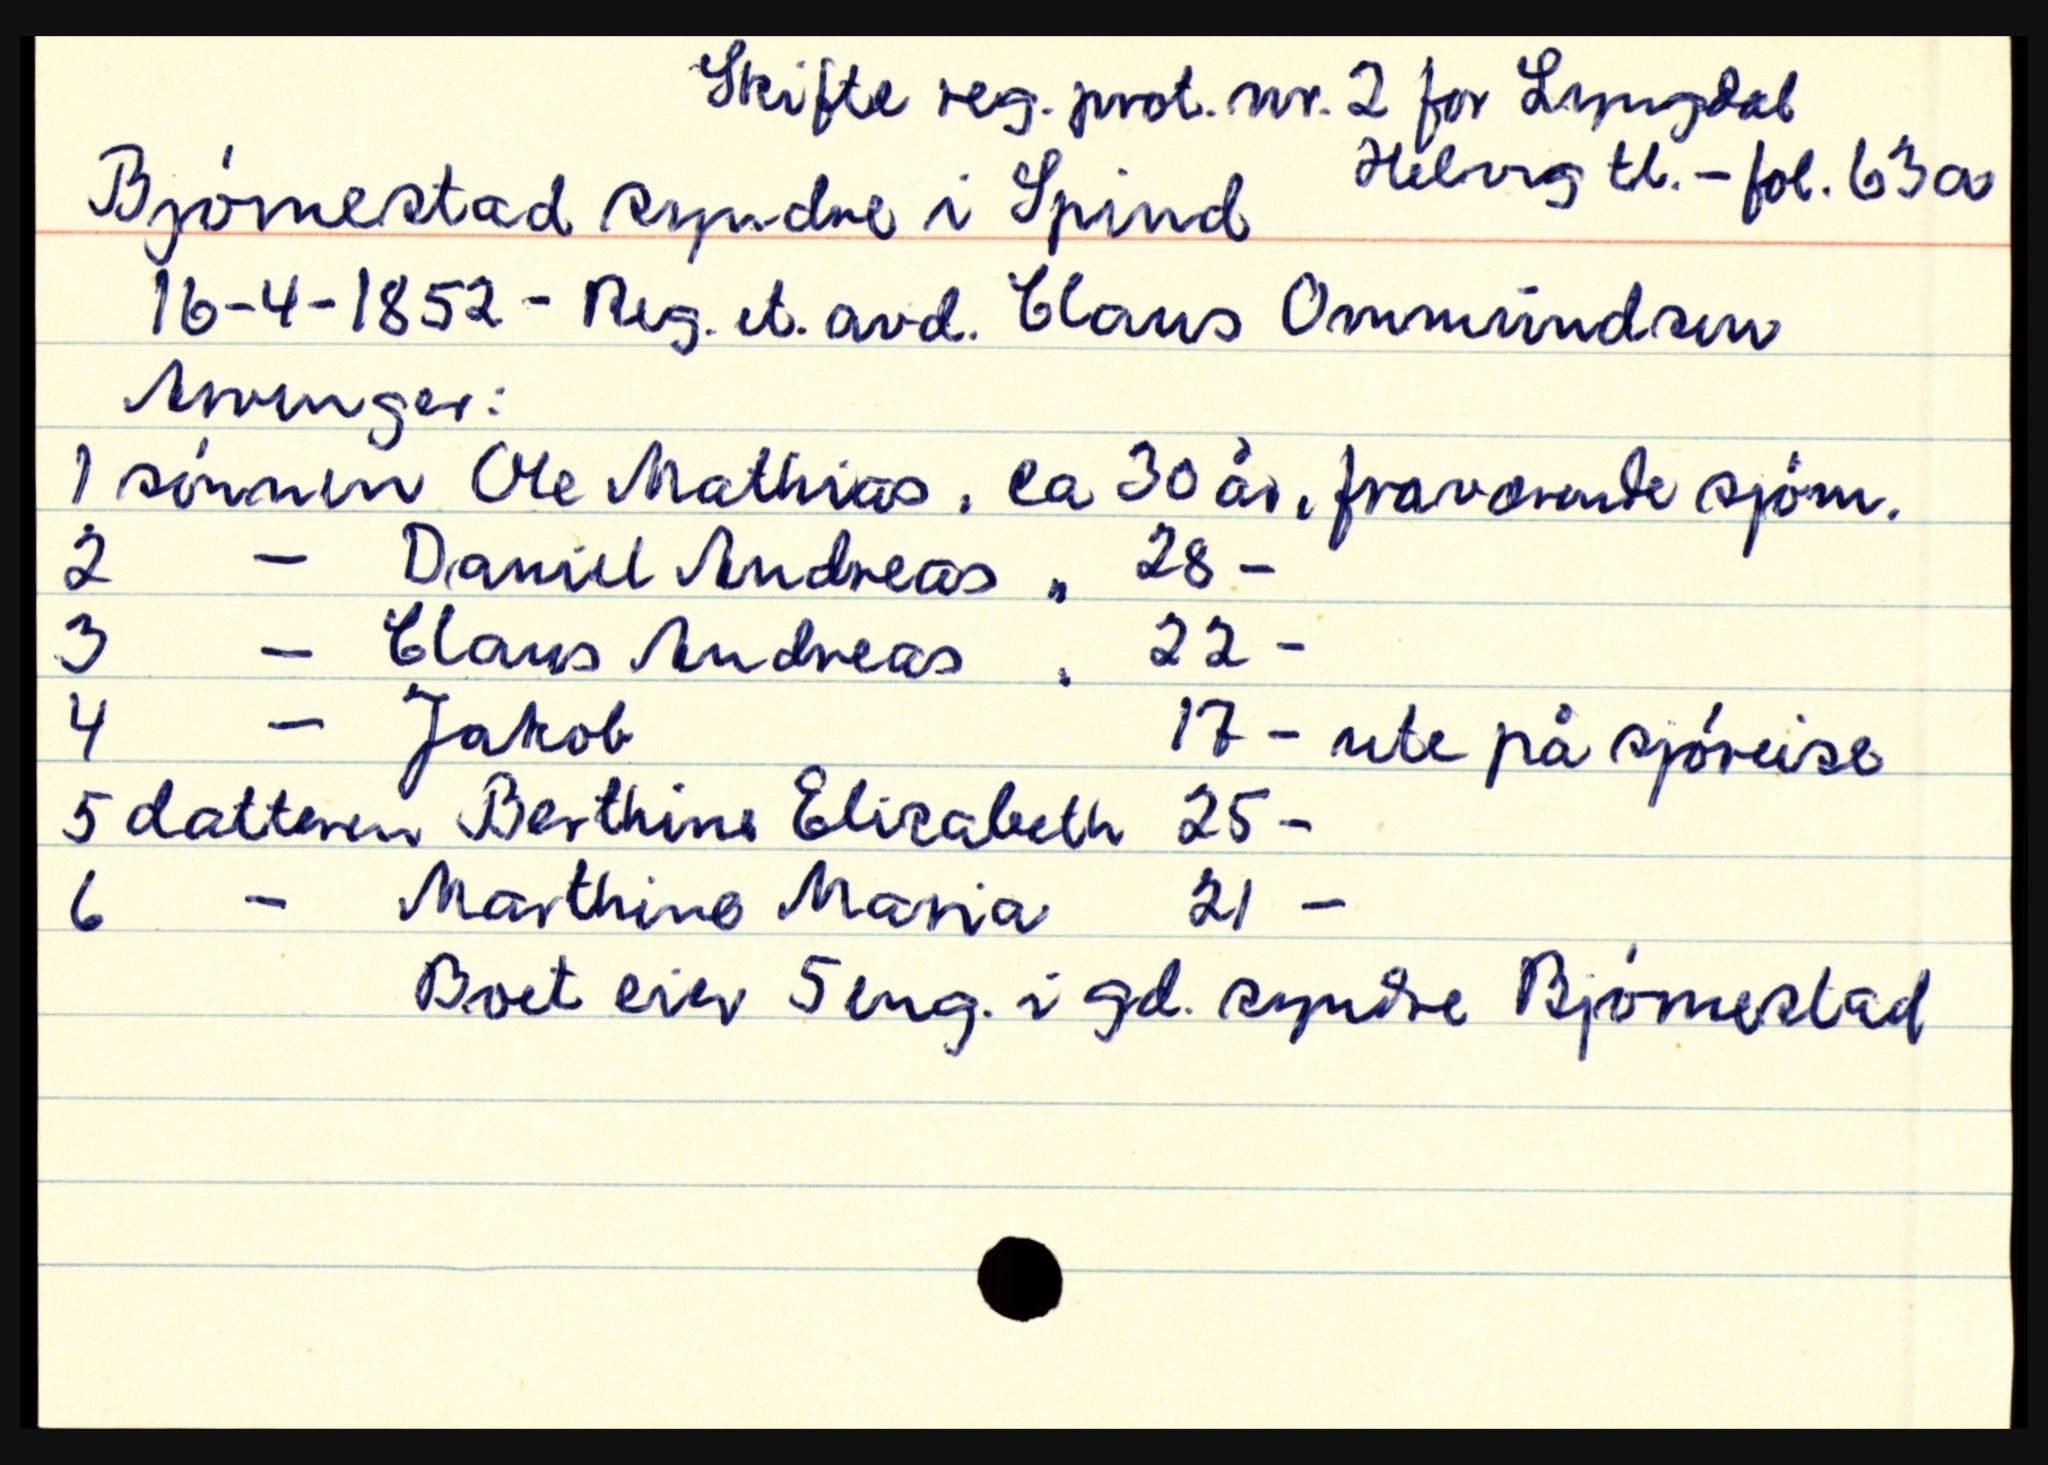 Skifte reg. prot. nr. 2 for Lyngdal
Helvig tl. - fol. 63a
Bjørnestad syndre i Spind
16-4-1852 - Reg. et. avd. Claus Ommundsen
Arvinger:
1 sønnen Ole Mathias, ca 30 år, fraværende sjøm.
2 - Daniel Andreas " 28 -
3 - Claus Andreas " 22 -
4 - Jakob 17 - ute på sjøreise
5 datteren Berthine Elisabeth 25 -
6 - Marthine Maria 21 -
Boet eier 5 eng. i gd. syndre Bjørnestad